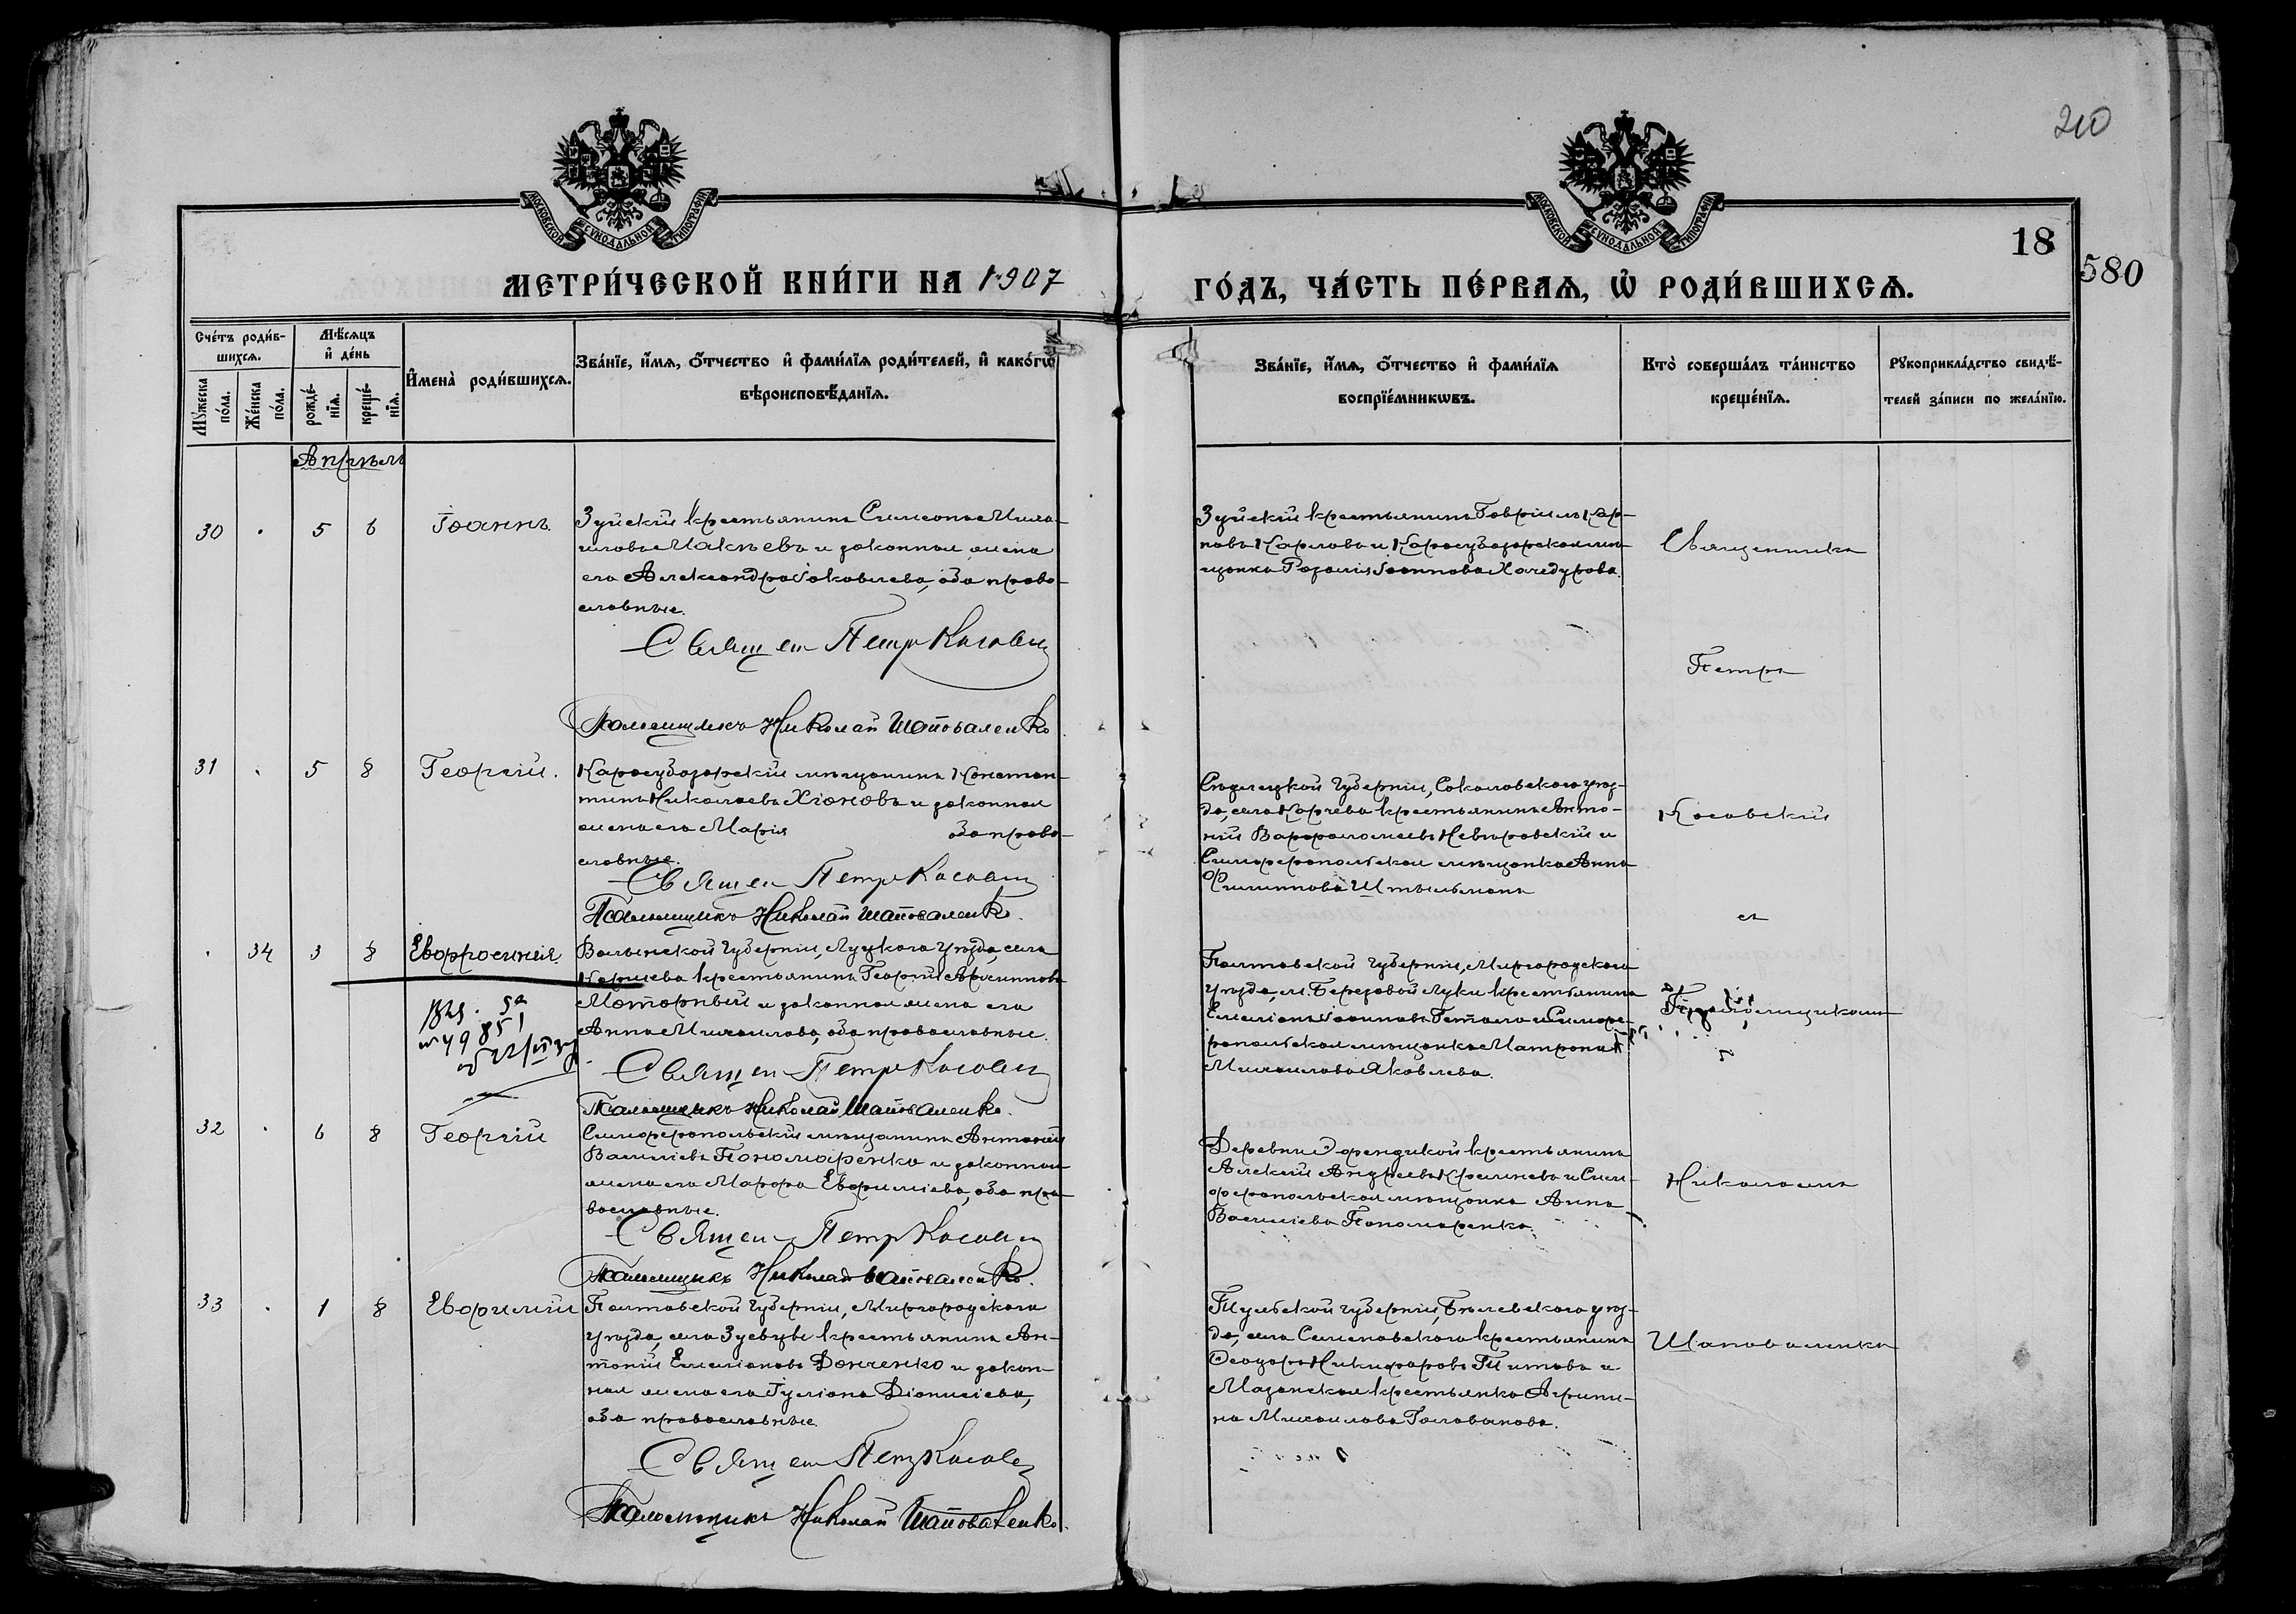 210
МОСКОВСКОЙ СѴНОДАЛЬНОЙ ТИПОГРАФІИ
МОСКОВСКОЙ СѴНОДАЛЬНОЙ ТИПОГРАФІИ
18
580
МЕТРИ́ЧЕСКОЙ КНИ́ГИ НА 1907
ГО́ДЪ, ЧА́СТЬ ПЕ́РВАѦ, Ѡ҆ РОДИ́ВШИХСѦ.
Сче́тъ роди́в-
шихсѧ.
Мѣ́сяцъ
и҆ де́нь
Мꙋ́жеска
по́ла.
Же́нска
по́ла.
рожде́-
нїѧ.
креще́-
нїѧ.
И҆мена̀ роди́вшихсѧ.
Зва́нїе, и҆́мѧ, ѻ҆́тчество и҆ фами́лїѧ роди́телей, и҆ како́гѡ
вѣроисповѣ́данїѧ.
Зва́нїе, и҆́мѧ, ѻ҆́тчество и҆ фами́лїѧ
воспрїе́мникѡвъ.
Кто̀ соверша́лъ та́инство
креще́нїѧ.
Рꙋкоприкла́дство свидѣ́-
телей за́писи по жела́нїю.
Апрѣль
30 . 5 6 Іоаннъ
Зуйскій крестьянинъ Симеонъ Миха-
иловъ Макѣевъ и законная жена
его Александра Іаковлева, оба право-
славные.
Священ Петр Косовск
Псаломщикъ Николай Шаповаленко
Зуйскій крестьянинъ Гавріилъ Кар-
повъ Карловъ и Карасубазарская мѣ-
щанка Розалія Іоаннова Хачедурова.
Священникъ
Петръ
31 . 5 8 Георгій.
Карасубазарскій мѣщанинъ Констан-
тинъ Николаевъ Хіоновъ и законная
жена его Марія оба право-
славные.
Священ Петр Косовск
Псаломщикъ Николай Шаповаленко.
Сѣдлецкой губерніи, Соколовского уѣз-
да, села Корчева крестьянинъ Анто-
ній Варфоломеевъ Невяровскій и
Симферопольская мѣщанка Анна
Филиппова Штыльманъ
Косовскій
съ
. 34 3 8 Евфросинія.
Волынской губерніи, Луцкого уѣзда, села
Коршева крестьянинъ Георгій Архиппов
Моторный и законная жена его
Анна Михаилова, оба православные.
Священ Петр Косовск
Псаломщикъ Николай Шаповаленко.
Полтавской губерніи, Миргородского
уѣзда, м. Березовой Луки крестьянинъ
Емеліанъ Іоанновъ Гетало и Симфе-
ропольская мѣщанка Матрона
Михаилова Яковлева.
Псаломщикомъ
32 . 6 8 Георгій
Симферопольскій мѣщанинъ Антоній
Василіевъ Пономаренко и законная
жена его Марфа Евфиміева, оба пра-
вославные.
Священ Петр Косовск
Псаломщикъ Николай Шаповаленко.
Деревни крестьянинъ
Алексій Андреевъ и Сим-
феропольская мѣщанка Анна
Василіева Пономаренко.
Николаемъ
33 . 1 8 Евфимій
Полтавской губерніи, Миргородского
уѣзда, села Зуевцы крестьянинъ Ан-
тоній Емеліановъ Донченко и закон-
ная жена его Іуліана Діонисіева,
оба православные.
Священ Петр Косовск
Псаломщикъ Николай Шаповаленко.
Тульской губерніи, Бѣлевского уѣз-
да, села крестьянинъ
Ѳеодоръ Никифоровъ Титовъ и
Мазанская крестьянка Агрипи-
на Михаилова Голованова.
Шаповаленко